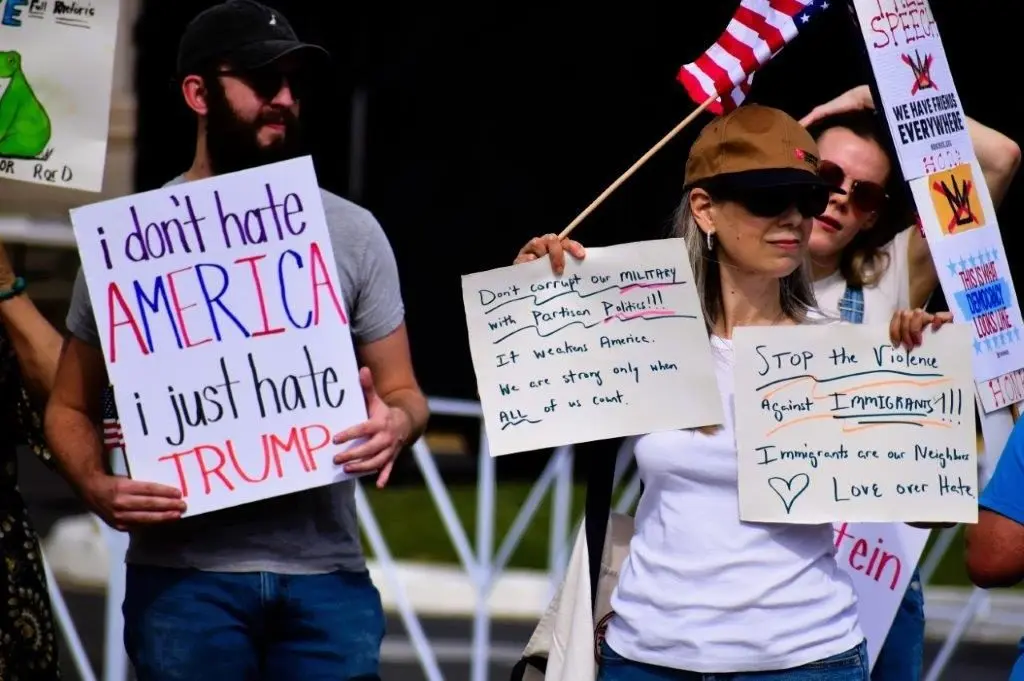 Full Rhetoric
i don't hate
AMERICA
i just hate
TRUMP
Don't corrupt our MILITARY
with Partisan Politics!!!
It weakens America.
We are strong only when
ALL of us count.
STOP the Violence
Against IMMIGRANTS!!!
Immigrants are our Neighbors
Love over Hate
SPEECH
WE HAVE FRIENDS
EVERYWHERE
THIS IS WHAT
DEMOCRACY
LOOKS LIKE